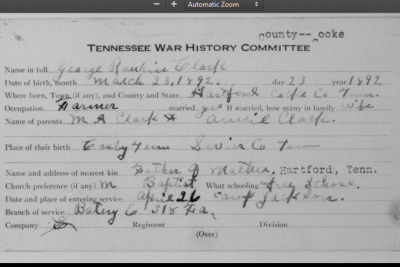 Automatic Zoom
county--ocke
TENNESSEE WAR HISTORY COMMITTEE
Name in full George Clark
Date of birth, month March 23, 1892. day 23 year 1892
Where born, Town (if any), and County and State. Hartford Cocke Co Tenn.
Occupation Farmer married yes If married, how many in family Wife
Name of parents. M A Clark & Annie Clark.
Place of their birth Tenn Sevier Co Tenn
Name and address of nearest kin Hartford, Tenn.
Church preference (if any) M Baptist What schooling free School
Date and place of entering service April 26 Camp Jackson.
Branch of service Batery C 318 F.A.
Company Regiment Division
(Over)